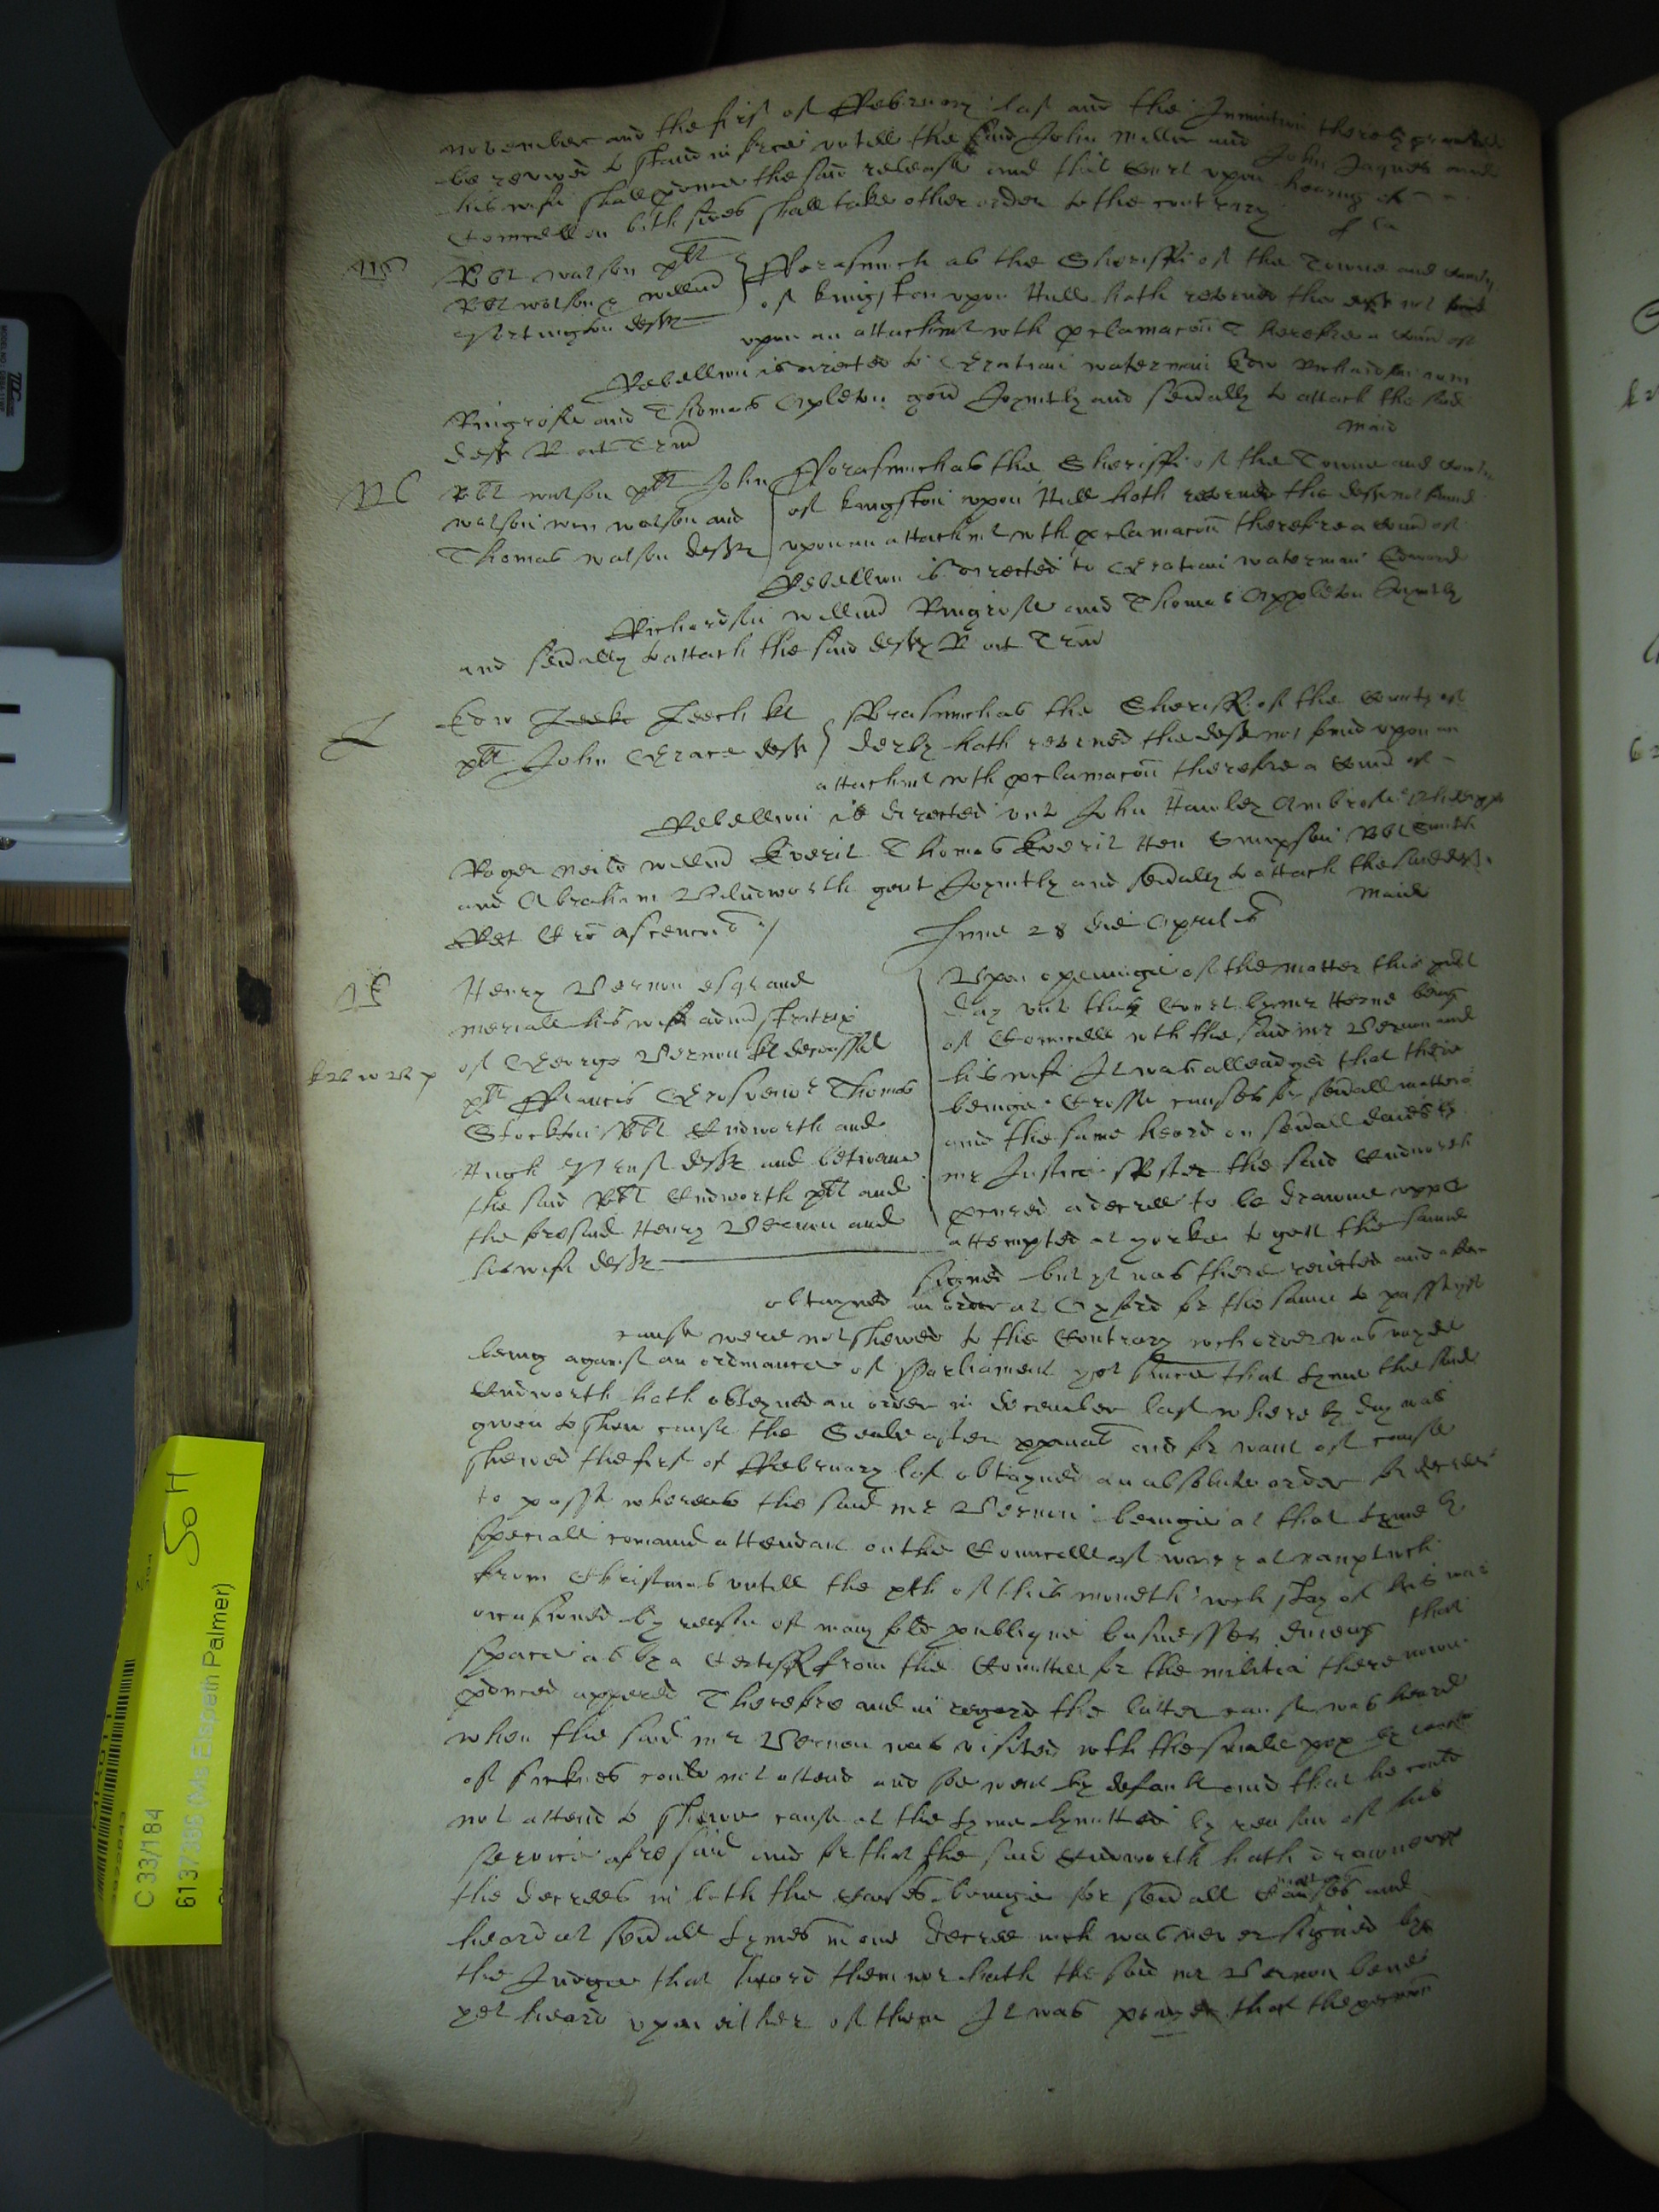 november and the first of ffebruary last and the Iniunction thereby granted
be revived to stand in force untill the said John Miller and John Jaques and
his wife shall the said release and that Court upon hearing of
Councell on both sides shall take other order to the contrary
Rbt Watson plt
Rbt Watson & Willm
Portington defts
fforasmuch as the Sheriffe of the Towne and County
of kingston upon Hull hath retorned the deft not found
upon an attachmt wth proclamacon Therefore a Comd of
Rebellion is directed to Gratian Waterman Edw Richardson Wm
Ringrose and Thomas Apleton gent Joyntly and sevally to attach the said
deft R oct Trin
Maid
Rbt Watson plt John
Watson Wm Watson and
Thomas Watson defts
fforasmuch as the Sheriffe of the Towne and County
of kingston upon Hull hath retorned the defts not found
upon an attachmt wth proclamacon therefore a Comd of
Rebellion is directed to Gratian Waterman Edward
Richardson Willm Ringrose and Thomas Appleton Joyntly
and sevally to attach the said defts R oct Trin
Edw Leeke Leech kt
plt John Grace deft
fforasmuch as the Sheriff of the County of
Derby hath retorned the deft not found upon an
attachmt wth proclamacon therefore a Comd of
Rebellion is directed unto John Hawley Ambrose
Roger Willm Everit Thomas Everit Hen Simpson Rbt Smith
and Abraham gent Joyntly and sevally to attach the said deft
Ret Cro ascencois
Maid
Lune 28 die Aprilis
Henry Vernon esqr and
Meriall his wife admistratrix
of George Vernon kt deceased
plt ffrancis Grosvenor Thomas
Stockton Rbt Cudworth and
Hugh defts and betweene
the said Rbt Cudworth plt and
the foresaid Henry Vernon and
his wife defts
Upon openinge of the matter this pnt
day unto this Court by mr Horne being
of Councell wth the said mr Vernon and
his wife It was alleadged that there
beinge Crosse causes for sevall matters
and the same heard on sevall daies by
mr Justice ffoster the said Cudworth
procured a decree to be drawne upp &
attempted at yorke to gett the same
signed but yt was there reiected and after
obtayned an order at Oxford for the same to passe yf
cause were not shewed to the Contrary wch order was voyde
being against an ordinance of Parliament yet since that tyme the said
Cudworth hath obteyned an order in december last whereby day was
given to shew cause the Seale after and for want of cause
shewed the first of ffebruary last obtayned an absolute order for decree
to passe whereas the said mr Vernon beinge at that tyme by
speciall comaund attendant on the Councell of warre at
from Christmas untill the xth of this moneth wch stay of his was
occasioned by reason of manyfold publique businesses dureing that
space as by a Certiff from the Comittee for the militia there now
pduced appered Therefore and in regard the latter cause was heard
when the said mr Vernon was visited wth the smale pox by
of sicknes could not attend and soe went by default and that he could
not attend to shewe cause at the tyme lymitted by reason of his
service aforesaid and for that the said Cudworth hath drawne upp
the decrees in both the Causes beinge for sevall Causes and
heard at sevall tymes in one decree wch was never signed by
the Judge that heard them nor hath the said mr Vernon bene
yet heard upon either of them It was prayed that the
C 33/184
6137386 (Ms Elspeth Palmer)
So H